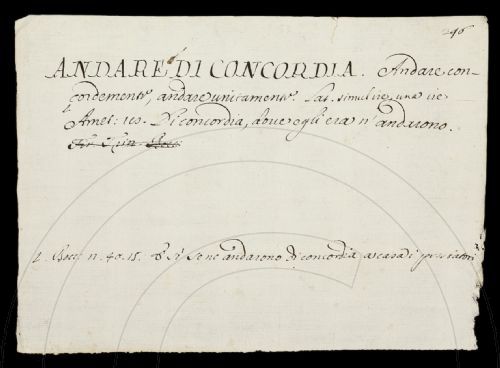 246
ANDARE DI CONCORDIA. Andare con-
cordemente, andare unitamente. Lat. simul ire, una ire
Amet. 110. Di concordia, dove egli era n'andarono.
2. Bocc. n. 40. 15. E sì se ne andarono di concordia a casa i prestatori